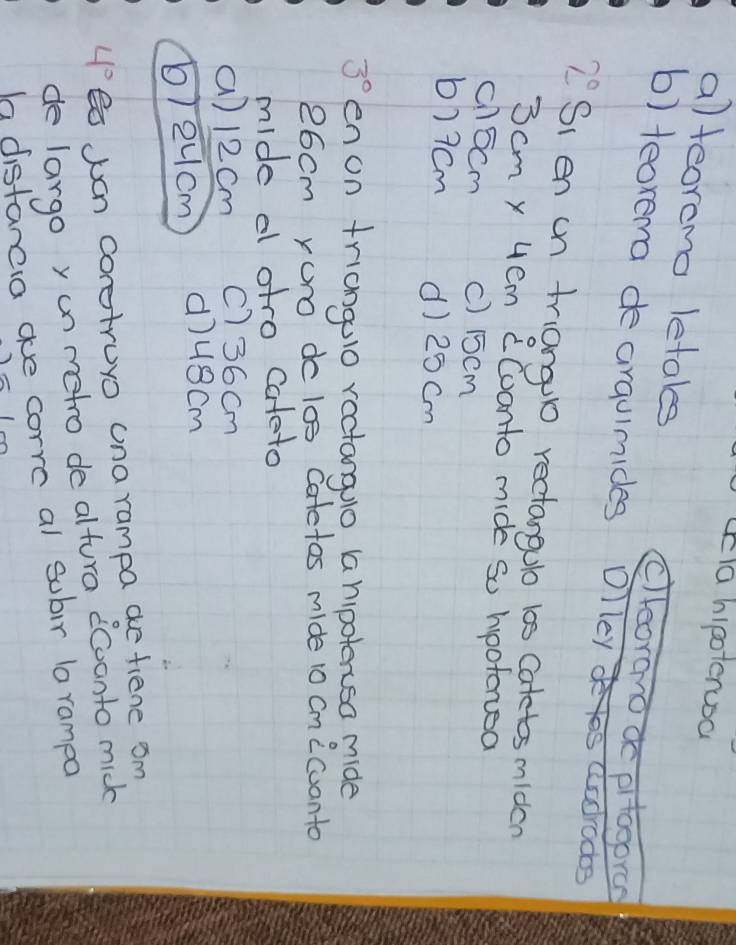 de la hipotenusa
a) teorema letales
c) teorema de pitagoras
b) teorema de arquimides
D) ley de los cuadrados
2° Si en un triangulo rectangulo los catetos miden
3cm y 4cm ¿Cuanto mide su hipotenusa
a) 5cm c) 15cm
b) 7cm d) 25cm
3° en un triangulo rectangulo la hipotenusa mide
26cm y uno de los catetos mide 10 cm ¿Cuanto
mide el otro cateto
a) 12cm c) 36cm
b) 24cm d) 48cm
4° Juan construyo una rampa que tiene 5m
de largo y un metro de altura ¿Cuanto mide
la distancia que corre al subir la rampa